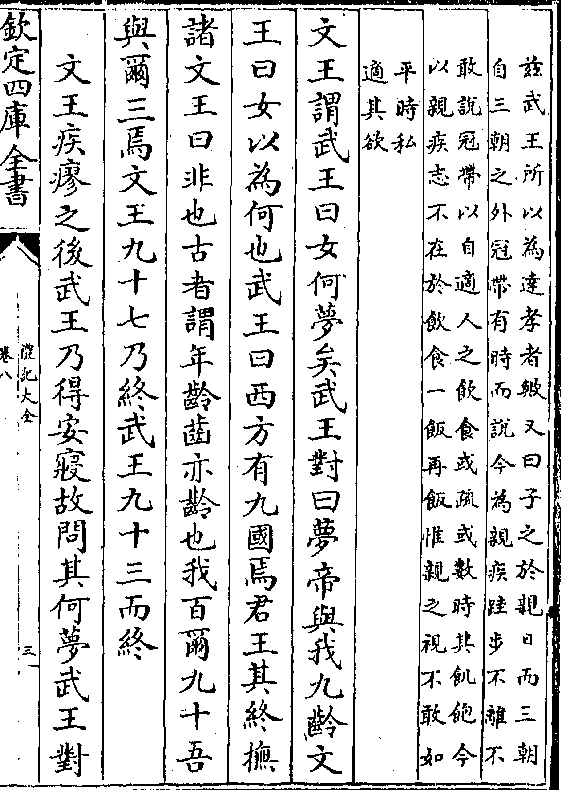 茲武王所以為達孝者歟又曰子之於親日而三朝
自三朝之外冠帶有時而說今為親疾跬步不離不
敢說冠帶以自適人之飲食或疏或數時其飢飽今
以親疾志不在於飲食一飯再飯惟親之視不敢如
平時私
適其欲
文王謂武王曰女何夢矣武王對曰夢帝與我九齡文
王曰女以為何也武王曰西方有九國焉君王其終撫
諸文王曰非也古者謂年齡齒亦齡也我百爾九十吾
與爾三焉文王九十七乃終武王九十三而終
文王疾瘳之後武王乃得安寢故問其何夢武王對
欽定四庫全書
禮記大全
卷八
三